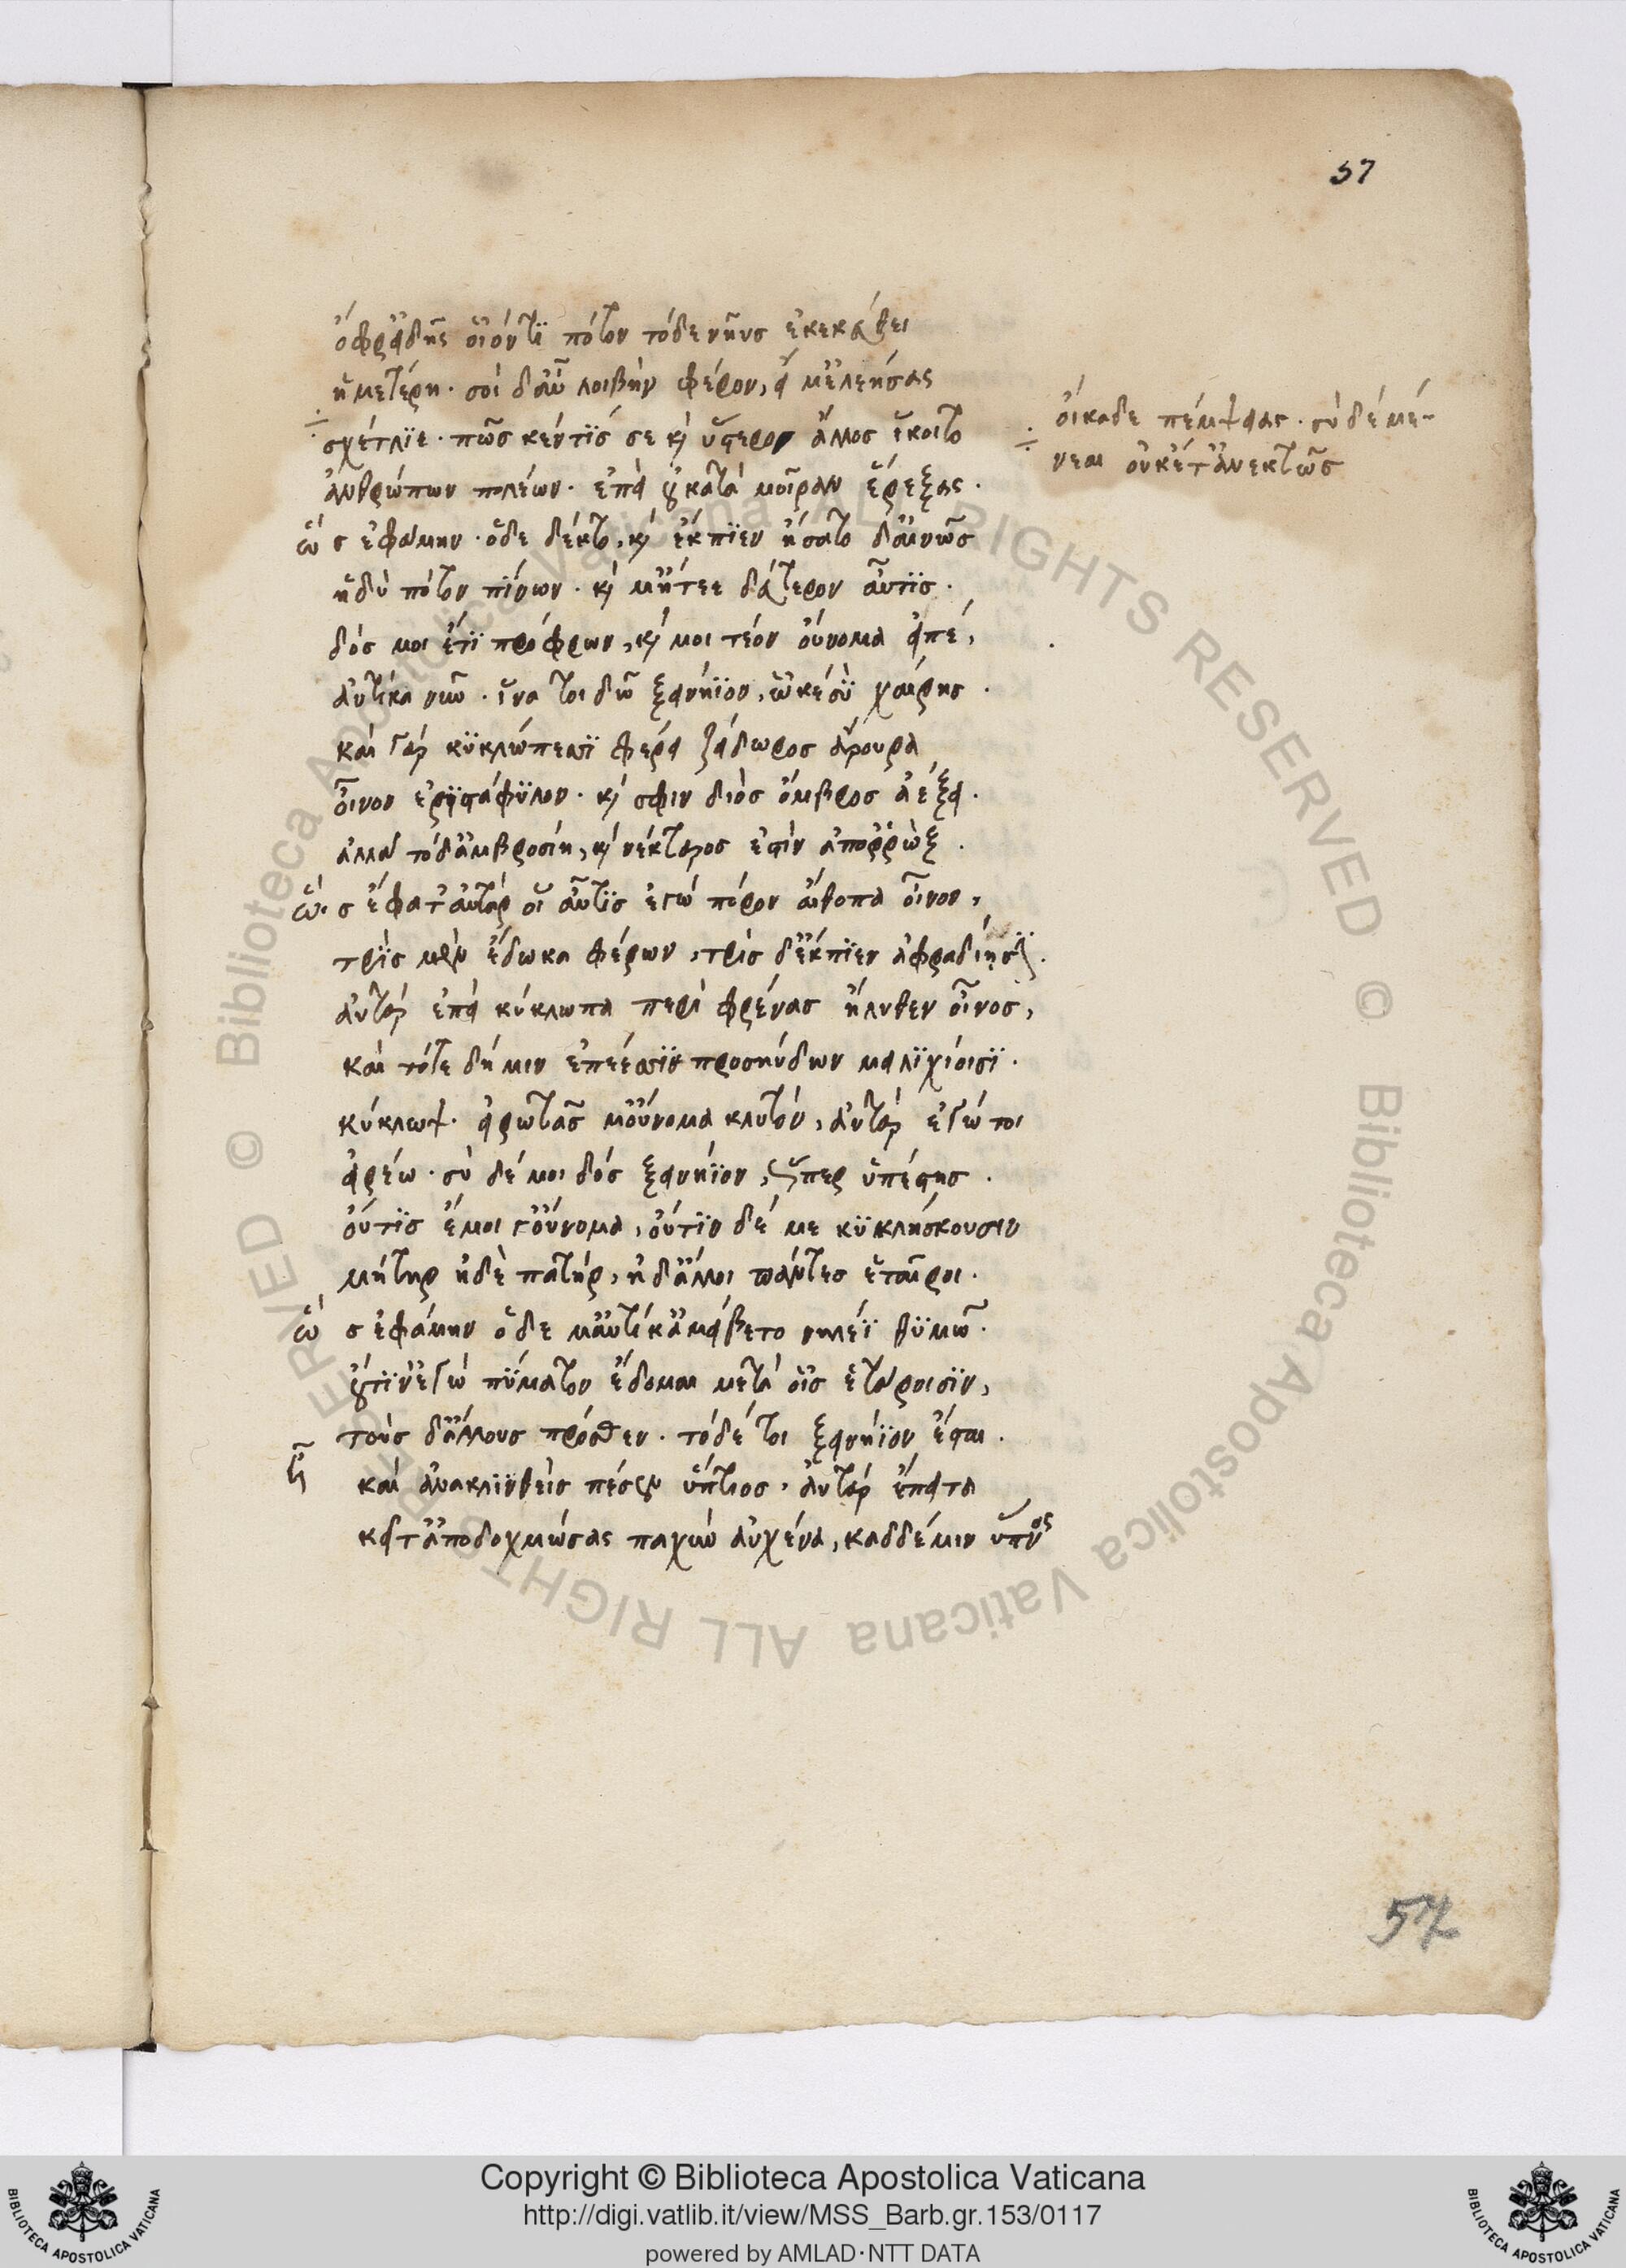 57
ὄφρ' εἰδῇς οἷόν τι ποτὸν τόδε νηῦς ἐκεκεύθει
ἡμετέρη· σοὶ δ' αὖ λοιβὴν φέρον, εἴ μ' ἐλεήσας
οἴκαδε πέμψειας· σὺ δὲ μαί-
νεαι οὐκέτ' ἀνεκτῶς
σχέτλιε· πῶς κέν τίς σε καὶ ὕστερον ἄλλος ἵκοιτο
ἀνθρώπων πολέων· ἐπεὶ οὐ κατὰ μοῖραν ἔρεξας·
ὣς ἐφάμην· ὁ δὲ δέκτο, καὶ ἔκπιεν ἥσατο δ' αἰνῶς
ἡδὺ ποτὸν πίνων· καὶ μ' ᾔτεε δεύτερον αὖτις·
δός μοι ἔτι πρόφρων, καί μοι τεὸν οὔνομα εἰπέ,
αὐτίκα νῦν· ἵνα τοι δῶ ξεινήϊον, ᾧ κε σὺ χαίρῃς·
καὶ γὰρ κυκλώπεσσι φέρει ζείδωρος ἄρουρα
οἶνον ἐριστάφυλον· καί σφιν διὸς ὄμβρος ἀέξει·
ἀλλὰ τόδ' ἀμβροσίη, καὶ νέκταρος ἐστὶν ἀπορρώξ·
ὣς ἔφατ' αὐτάρ οἱ αὖτις ἐγὼ πόρον αἴθοπα οἶνον,
τρὶς μὲν ἔδωκα φέρων, τρὶς δ' ἔκπιεν ἀφραδίῃσι·
αὐτὰρ ἐπεὶ κύκλωπα περὶ φρένας ἤλυθεν οἶνος,
καὶ τότε δή μιν ἐπέεσσι προσηύδων μειλιχίοισι·
κύκλωψ· εἰρωτᾷς μ' οὔνομα κλυτόν, αὐτὰρ ἐγώ τοι
ἐρέω· σὺ δέ μοι δὸς ξεινήϊον, ὥσπερ ὑπέστης·
οὔτις ἔμοιγ' οὔνομα, οὔτιν δέ με κικλήσκουσιν
μήτηρ ἠδὲ πατήρ, ἠδ' ἄλλοι πάντες ἑταῖροι·
ὣς ἐφάμην ὁ δέ μ' αὐτίκ' ἀμείβετο νηλέϊ θυμῷ·
οὔτιν ἐγὼ πύματον ἔδομαι μετὰ οἷς ἑτάροισιν,
τοὺς δ' ἄλλους πρόσθεν· τὸ δέ τοι ξεινήϊον ἔσται·
ἦ καὶ ἀνακλινθεὶς πέσεν ὕπτιος, αὐτὰρ ἔπειτα
κεῖτ' ἀποδοχμώσας παχὺν αὐχένα, καδδέ μιν ὕπνος
57
© Biblioteca Apostolica Vaticana ALL RIGHTS RESERVED
Copyright © Biblioteca Apostolica Vaticana
http://digi.vatlib.it/view/MSS_Barb.gr.153/0117
powered by AMLAD·NTT DATA
BIBLIOTECA APOSTOLICA VATICANA
BIBLIOTECA APOSTOLICA VATICANA